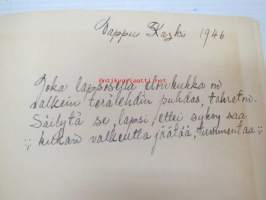 Vappu Kaski 1946
Joka lapsosella elonkukka on
valkein terälehdin puhdas, tahraton.
Säilytä se, lapsi, ettei syksyn saa
:,: hallaan valkeutta jäätää, turmentaa :,: